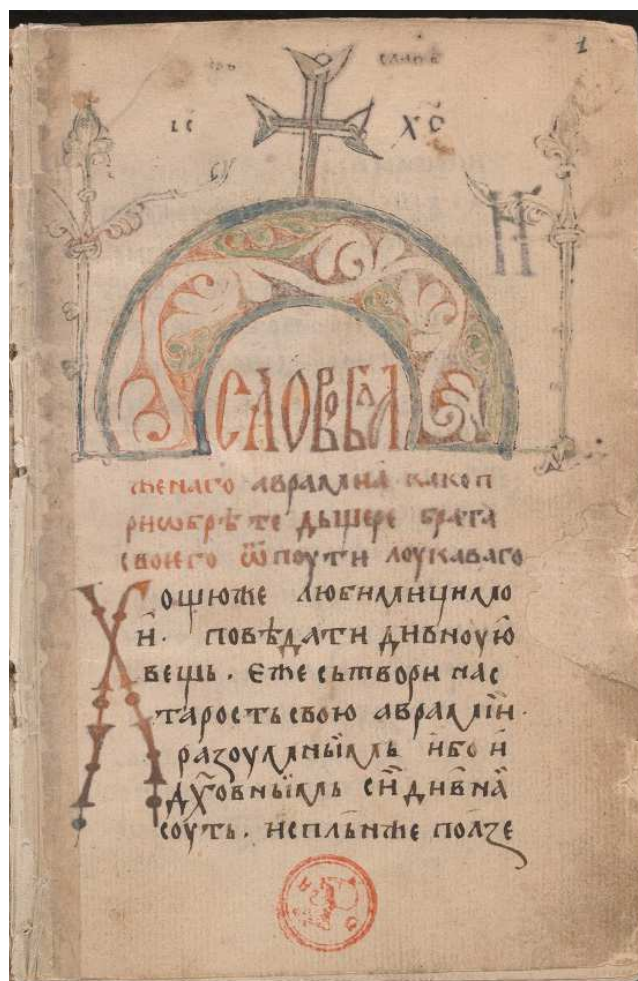 1
ІС ХС
СЛОВО БЛА
женаго авраамиа како п
риѡбрѣте дьщере брата
своего ѿ поути лоукаваго
Хощюже любимицимло
и҆. повѣдати дивноую
вещь. Еже сьтвори нас
тарость свою авраамїи.
разоумныимь ибо и
дх҃овныимь сиѝ дивна
соуть. исплънже ползе